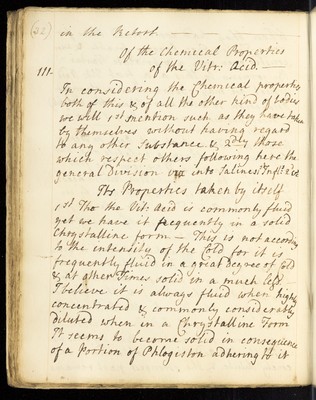 (32) in the Retort
Of the Chemical Properties
of the Vitr: Acid.
111. In considering the Chemical properties
both of this & of all the other kind of bodies
we will 1st mention such as they have taken
by themselves without having regard
to any other Substance & 2dly those
which respect others following here the
general Division into Salines: Infl: &c
Its Properties taken by itself
1st Tho' the Vitr: Acid is commonly fluid
yet we have it frequently in a solid
Chrystalline form — This is not according
to the intensity of the Cold for it is
frequently fluid in a great degree of Cold
& at other Times solid in a much less
I believe it is always fluid when highly
concentrated & commonly considerably
Diluted when in a Chrystalline Form
It seems to become solid in consequence
of a Portion of Phlogiston adhering to it